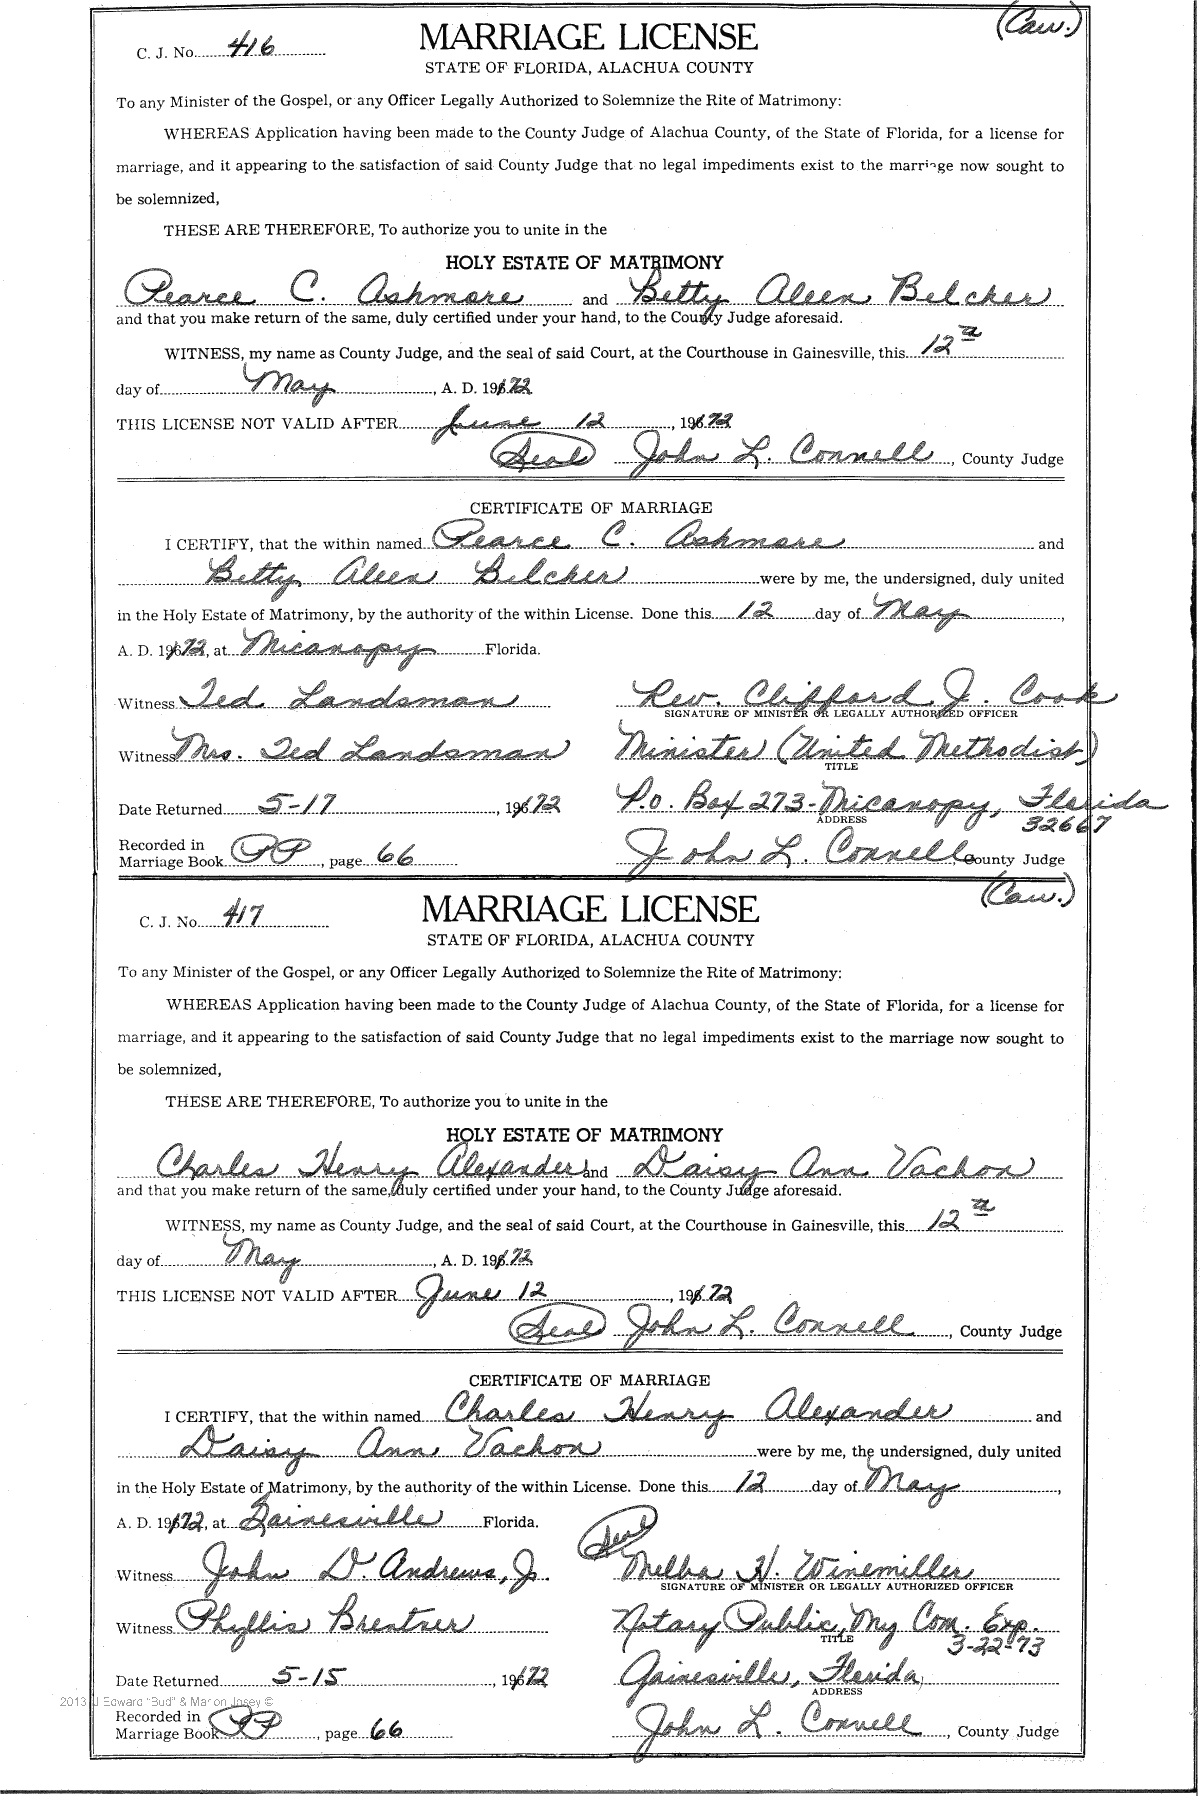 (Caw.)
C. J. No. 416
MARRIAGE LICENSE
STATE OF FLORIDA, ALACHUA COUNTY
To any Minister of the Gospel, or any Officer Legally Authorized to Solemnize the Rite of Matrimony:
WHEREAS Application having been made to the County Judge of Alachua County, of the State of Florida, for a license for
marriage, and it appearing to the satisfaction of said County Judge that no legal impediments exist to the marriage now sought to
be solemnized,
THESE ARE THEREFORE, To authorize you to unite in the
HOLY ESTATE OF MATRIMONY
Pearce C. Ashmore and Betty Aleen Belcher
and that you make return of the same, duly certified under your hand, to the County Judge aforesaid.
WITNESS, my name as County Judge, and the seal of said Court, at the Courthouse in Gainesville, this 12th
day of May, A. D. 1972
THIS LICENSE NOT VALID AFTER June 12, 1972
(Seal) John L. Connell, County Judge
CERTIFICATE OF MARRIAGE
I CERTIFY, that the within named Pearce C. Ashmore and
Betty Aleen Belcher were by me, the undersigned, duly united
in the Holy Estate of Matrimony, by the authority of the within License. Done this 12 day of May,
A. D. 1972, at Micanopy Florida.
Witness Ted Landsman Rev. Clifford J. Cook
SIGNATURE OF MINISTER OR LEGALLY AUTHORIZED OFFICER
Witness Mrs. Ted Landsman Minister (United Methodist)
TITLE
Date Returned 5-17, 1972 P.O. Box 273-Micanopy, Florida
ADDRESS 32667
Recorded in
Marriage Book PP, page 66 John L. Connell, County Judge
(Caw.)
C. J. No. 417
MARRIAGE LICENSE
STATE OF FLORIDA, ALACHUA COUNTY
To any Minister of the Gospel, or any Officer Legally Authorized to Solemnize the Rite of Matrimony:
WHEREAS Application having been made to the County Judge of Alachua County, of the State of Florida, for a license for
marriage, and it appearing to the satisfaction of said County Judge that no legal impediments exist to the marriage now sought to
be solemnized,
THESE ARE THEREFORE, To authorize you to unite in the
HOLY ESTATE OF MATRIMONY
Charles Henry Alexander and Daisy Ann Vachon
and that you make return of the same, duly certified under your hand, to the County Judge aforesaid.
WITNESS, my name as County Judge, and the seal of said Court, at the Courthouse in Gainesville, this 12th
day of May, A. D. 1972
THIS LICENSE NOT VALID AFTER June 12, 1972
(Seal) John L. Connell, County Judge
CERTIFICATE OF MARRIAGE
I CERTIFY, that the within named Charles Henry Alexander and
Daisy Ann Vachon were by me, the undersigned, duly united
in the Holy Estate of Matrimony, by the authority of the within License. Done this 12 day of May,
A. D. 1972, at Gainesville Florida.
(Seal)
Witness John D. Andrews, Jr. Melba H. Winemiller
SIGNATURE OF MINISTER OR LEGALLY AUTHORIZED OFFICER
Witness Phyllis Brentner Notary Public, My Com. Exp.
TITLE 3-22-73
Date Returned 5-15, 1972 Gainesville, Florida
ADDRESS
2013 J Edward "Bud" & Marion Josey ©
Recorded in
Marriage Book PP, page 66 John L. Connell, County Judge